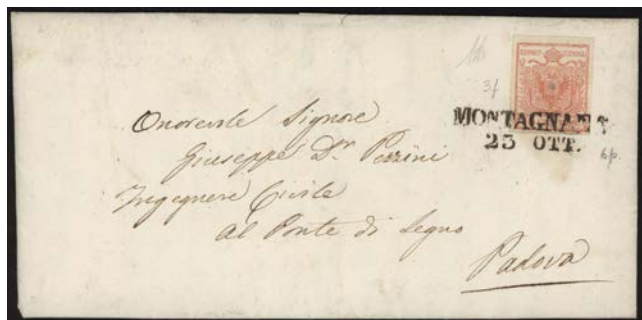 MONTAGNANA
25 OTT.
Onorevole Signore
Giuseppe Dr.
Ingegnere Civile
al Ponte di Legno
Padova